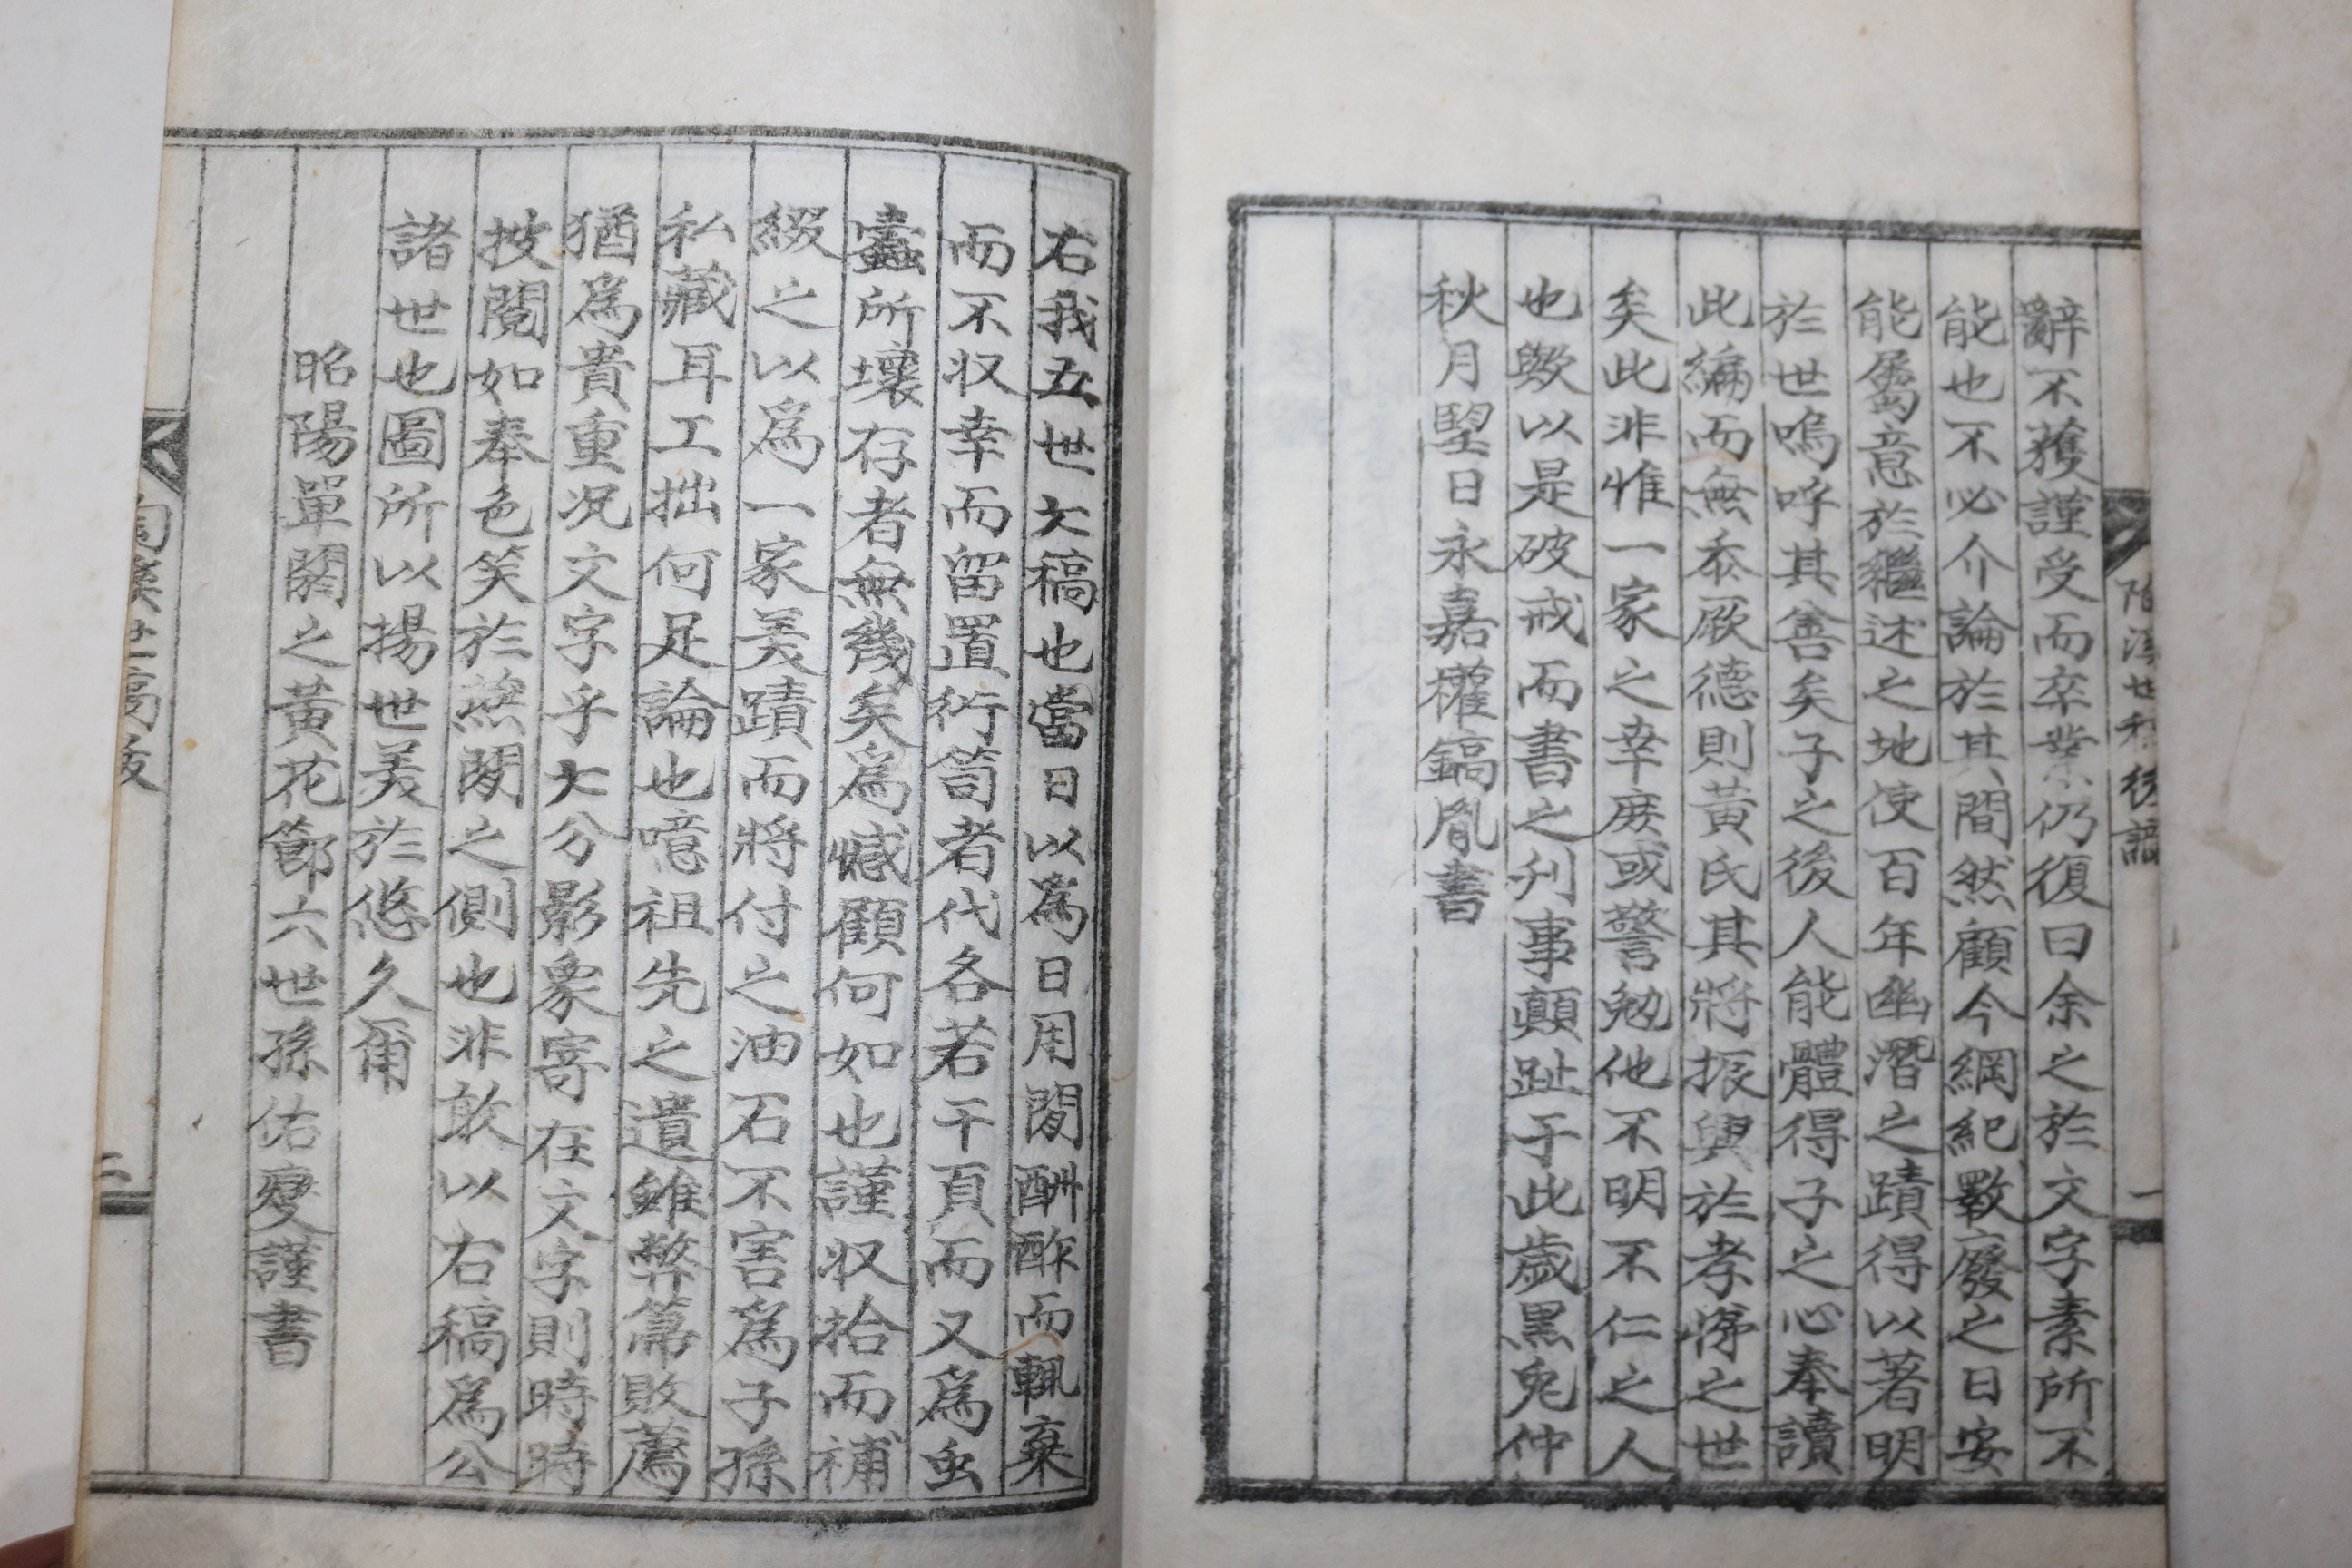 辭不獲謹受而卒業仍復曰余之於文字素所不
能也不必介論於其間然顧今綱紀斁廢之日安
能屬意於繼述之地使百年幽潛之蹟得以著明
於世嗚呼其善矣子之後人能體得子之心奉讀
此編而無忝厥德則黃氏其將振興於孝悌之世
矣此非惟一家之幸庶或警勉他不明不仁之人
也歟以是破戒而書之刋事顛趾于此歲黑兔仲
秋月朢日永嘉權鎬胤書
右我五世大稿也當日以爲日用閒酬酢而輒棄
而不収幸而留置衍笥者代各若干頁而又爲虫
蠹所壞存者無幾矣爲憾顧何如也謹収拾而補
綴之以爲一家美蹟而將付之油石不害爲子孫
私藏耳工拙何足論也噫祖先之遺雖弊篇敗薦
猶爲貴重况文字乎大分影象寄在文字則時時
披閱如奉色笑於燕閒之側也非敢以右稿爲公
諸世也圖所以揚世美於悠久爾
昭陽單閼之黃花節六世孫佑夔謹書